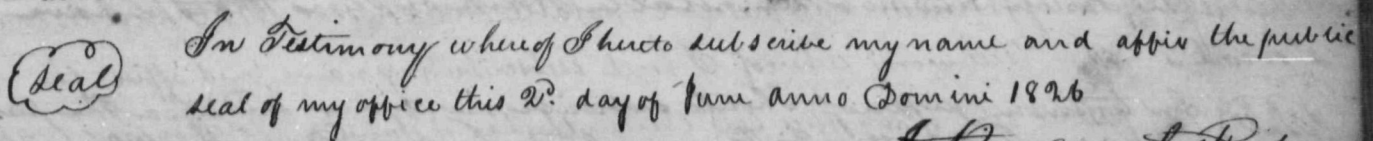 seal
In Testimony whereof I hereto subscribe my name and affix the public
seal of my office this 2d. day of June anno Domini 1826